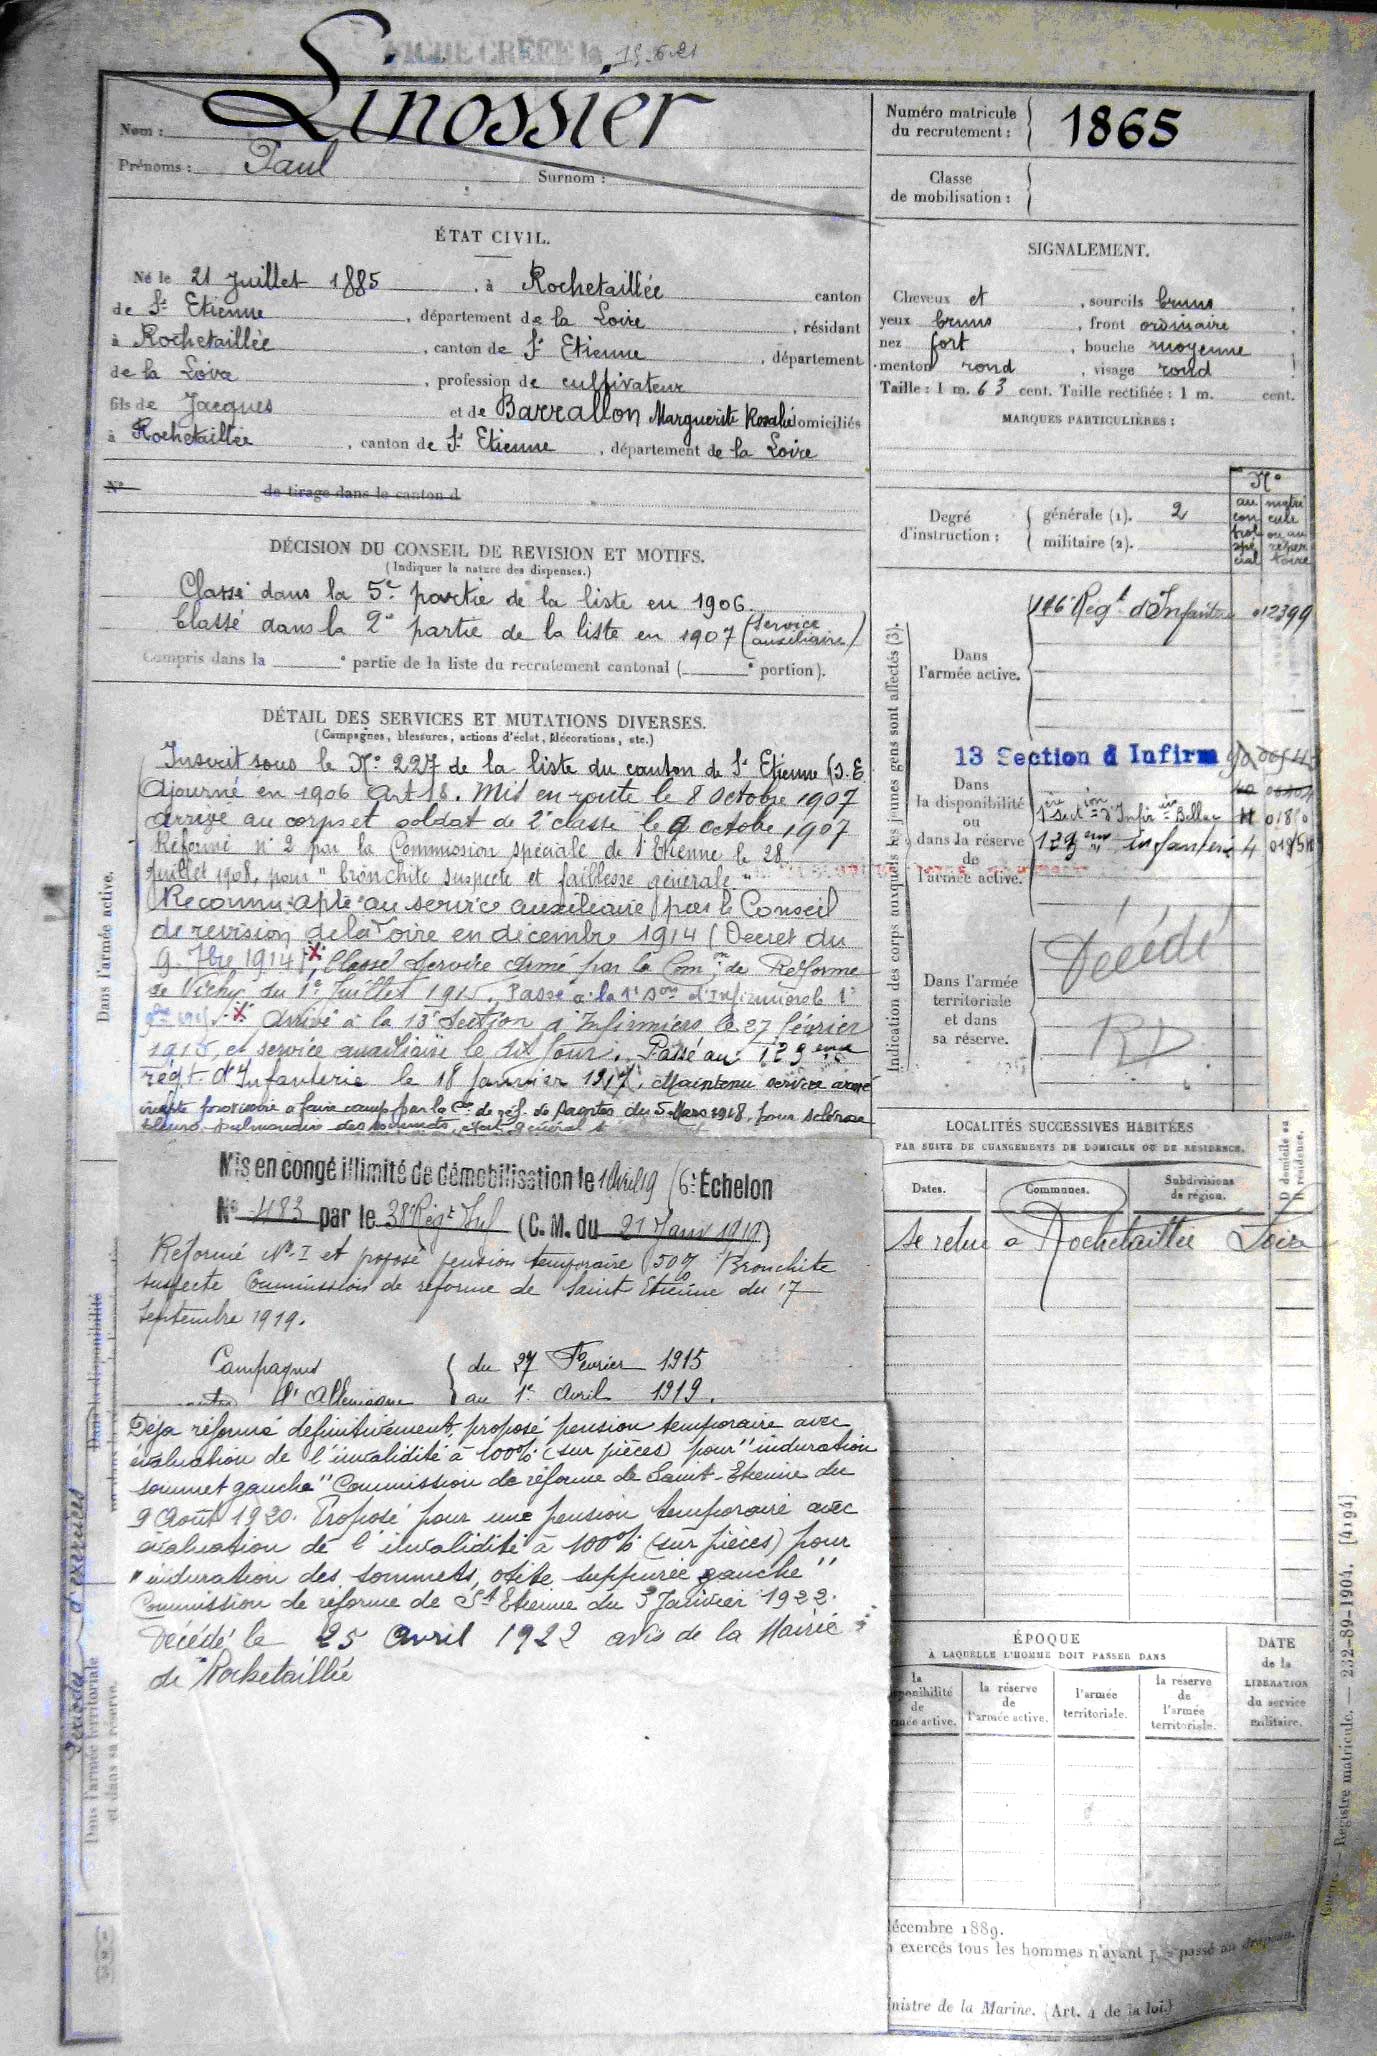 FICHE CRÉÉE le 15.6.21
Nom : Linossier
Prénoms : Paul Surnom :
Numéro matricule
du recrutement : 1865
Classe
de mobilisation :
ÉTAT CIVIL.
Né le 21 Juillet 1885, à Rochetaillée canton
de St Etienne, département de la Loire, résidant
à Rochetaillée, canton de St Etienne, département
de la Loire, profession de cultivateur
fils de Jacques et de Barrallon Marguerite Rosalie domiciliés
à Rochetaillée, canton de St Etienne, département de la Loire
N° de tirage dans le canton d
SIGNALEMENT.
Cheveux et , sourcils bruns
yeux bruns, front ordinaire
nez fort, bouche moyenne
menton rond, visage rond
Taille : 1 m. 63 cent. Taille rectifiée : 1 m. cent.
MARQUES PARTICULIÈRES :
Degré
d'instruction :
générale (1). 2
militaire (2).
N°
au con trol spé cial
matri cule ou au réper toire
DÉCISION DU CONSEIL DE REVISION ET MOTIFS.
(Indiquer la nature des dispenses.)
Classé dans la 5e partie de la liste en 1906
Classé dans la 2e partie de la liste en 1907 (service auxiliaire)
Compris dans la e partie de la liste du recrutement cantonal ( e portion).
DÉTAIL DES SERVICES ET MUTATIONS DIVERSES.
(Campagnes, blessures, actions d'éclat, décorations, etc.)
Inscrit sous le N° 227 de la liste du canton de St Etienne (S.E
Ajourné en 1906 Art 18. Mis en route le 8 Octobre 1907
Arrivé au corps et soldat de 2e classe le 9 octobre 1907
Réformé n° 2 par la Commission spéciale de St Etienne le 28
Juillet 1908, pour "bronchite suspecte et faiblesse générale"
Reconnu apte au service auxiliaire par le Conseil
de revision de la Loire en décembre 1914 (Décret du
9 7bre 1914) x, Classé Service Armé par la Comon de Réforme
de Vichy du 1er Juillet 1915. Passé à la 1e Son d'Infirmiers le 1er
x Arrivé à la 13e Section d'Infirmiers le 27 février
1915, et service auxiliaire le dit jour. Passé au 129eme
régt. d'Infanterie le 18 Janvier 1917. Maintenu service armé
inapte provisoire à faire camp. par la Con de réf. de Nantes du 5 Mars 1918, pour sclérose
pleuro-pulmonaire des sommets, état général
Mis en congé illimité de démobilisation le 1 Avril 19 (6e Échelon
N° 483 par le 38e Régt Inf (C. M. du 21 Janv 1919)
Réformé No I et proposé pension temporaire 50% Bronchite
suspecte Commission de réforme de Saint Etienne du 17
septembre 1919.
Campagnes
{ du 27 Février 1915
d'Allemagne { au 1er Avril 1919.
Déja réformé définitivement, proposé pension temporaire avec
évaluation de l'invalidité à 100% (sur pièces) pour "induration
sommet gauche" Commission de réforme de Saint-Etienne du
9 Août 1920. Proposé pour une pension temporaire avec
évaluation de l'invalidité à 100% (sur pièces) pour
"induration des sommets, otite suppurée gauche"
Commission de réforme de St Etienne du 3 Janvier 1922.
Décédé le 25 Avril 1922 avis de la Mairie
de Rochetaillée
Dans l'armée active.
Dans la disponibilité
Périodes d'exercices
Dans l'armée territoriale
et dans sa réserve.
Indication des corps auxquels les jeunes gens sont affectés (3).
Dans
l'armée active.
Régt d'Infanterie 012399
13 Section d Infirm
Dans
la disponibilité
ou
dans la réserve
de
l'armée active.
1ère Section d'Infir
129eme infanterie 4
Dans l'armée
territoriale
et dans
sa réserve.
Décédé
RD
LOCALITÉS SUCCESSIVES HABITÉES
PAR SUITE DE CHANGEMENTS DE DOMICILE OU DE RÉSIDENCE.
Dates. Communes. Subdivisions
de région.
D domicile ou
R résidence.
Se retire à Rochetaillée Loire
ÉPOQUE
À LAQUELLE L'HOMME DOIT PASSER DANS
la
disponibilité
de
l'armée active.
la réserve
de
l'armée active.
l'armée
territoriale.
la réserve
de
l'armée
territoriale.
DATE
de la
LIBÉRATION
du service
militaire.
décembre 1889.
exercés tous les hommes n'ayant pas passé au drapeau.
ministre de la Marine. (Art. 4 de la loi.)
Registre matricule. — 232-89-1904. [4194]